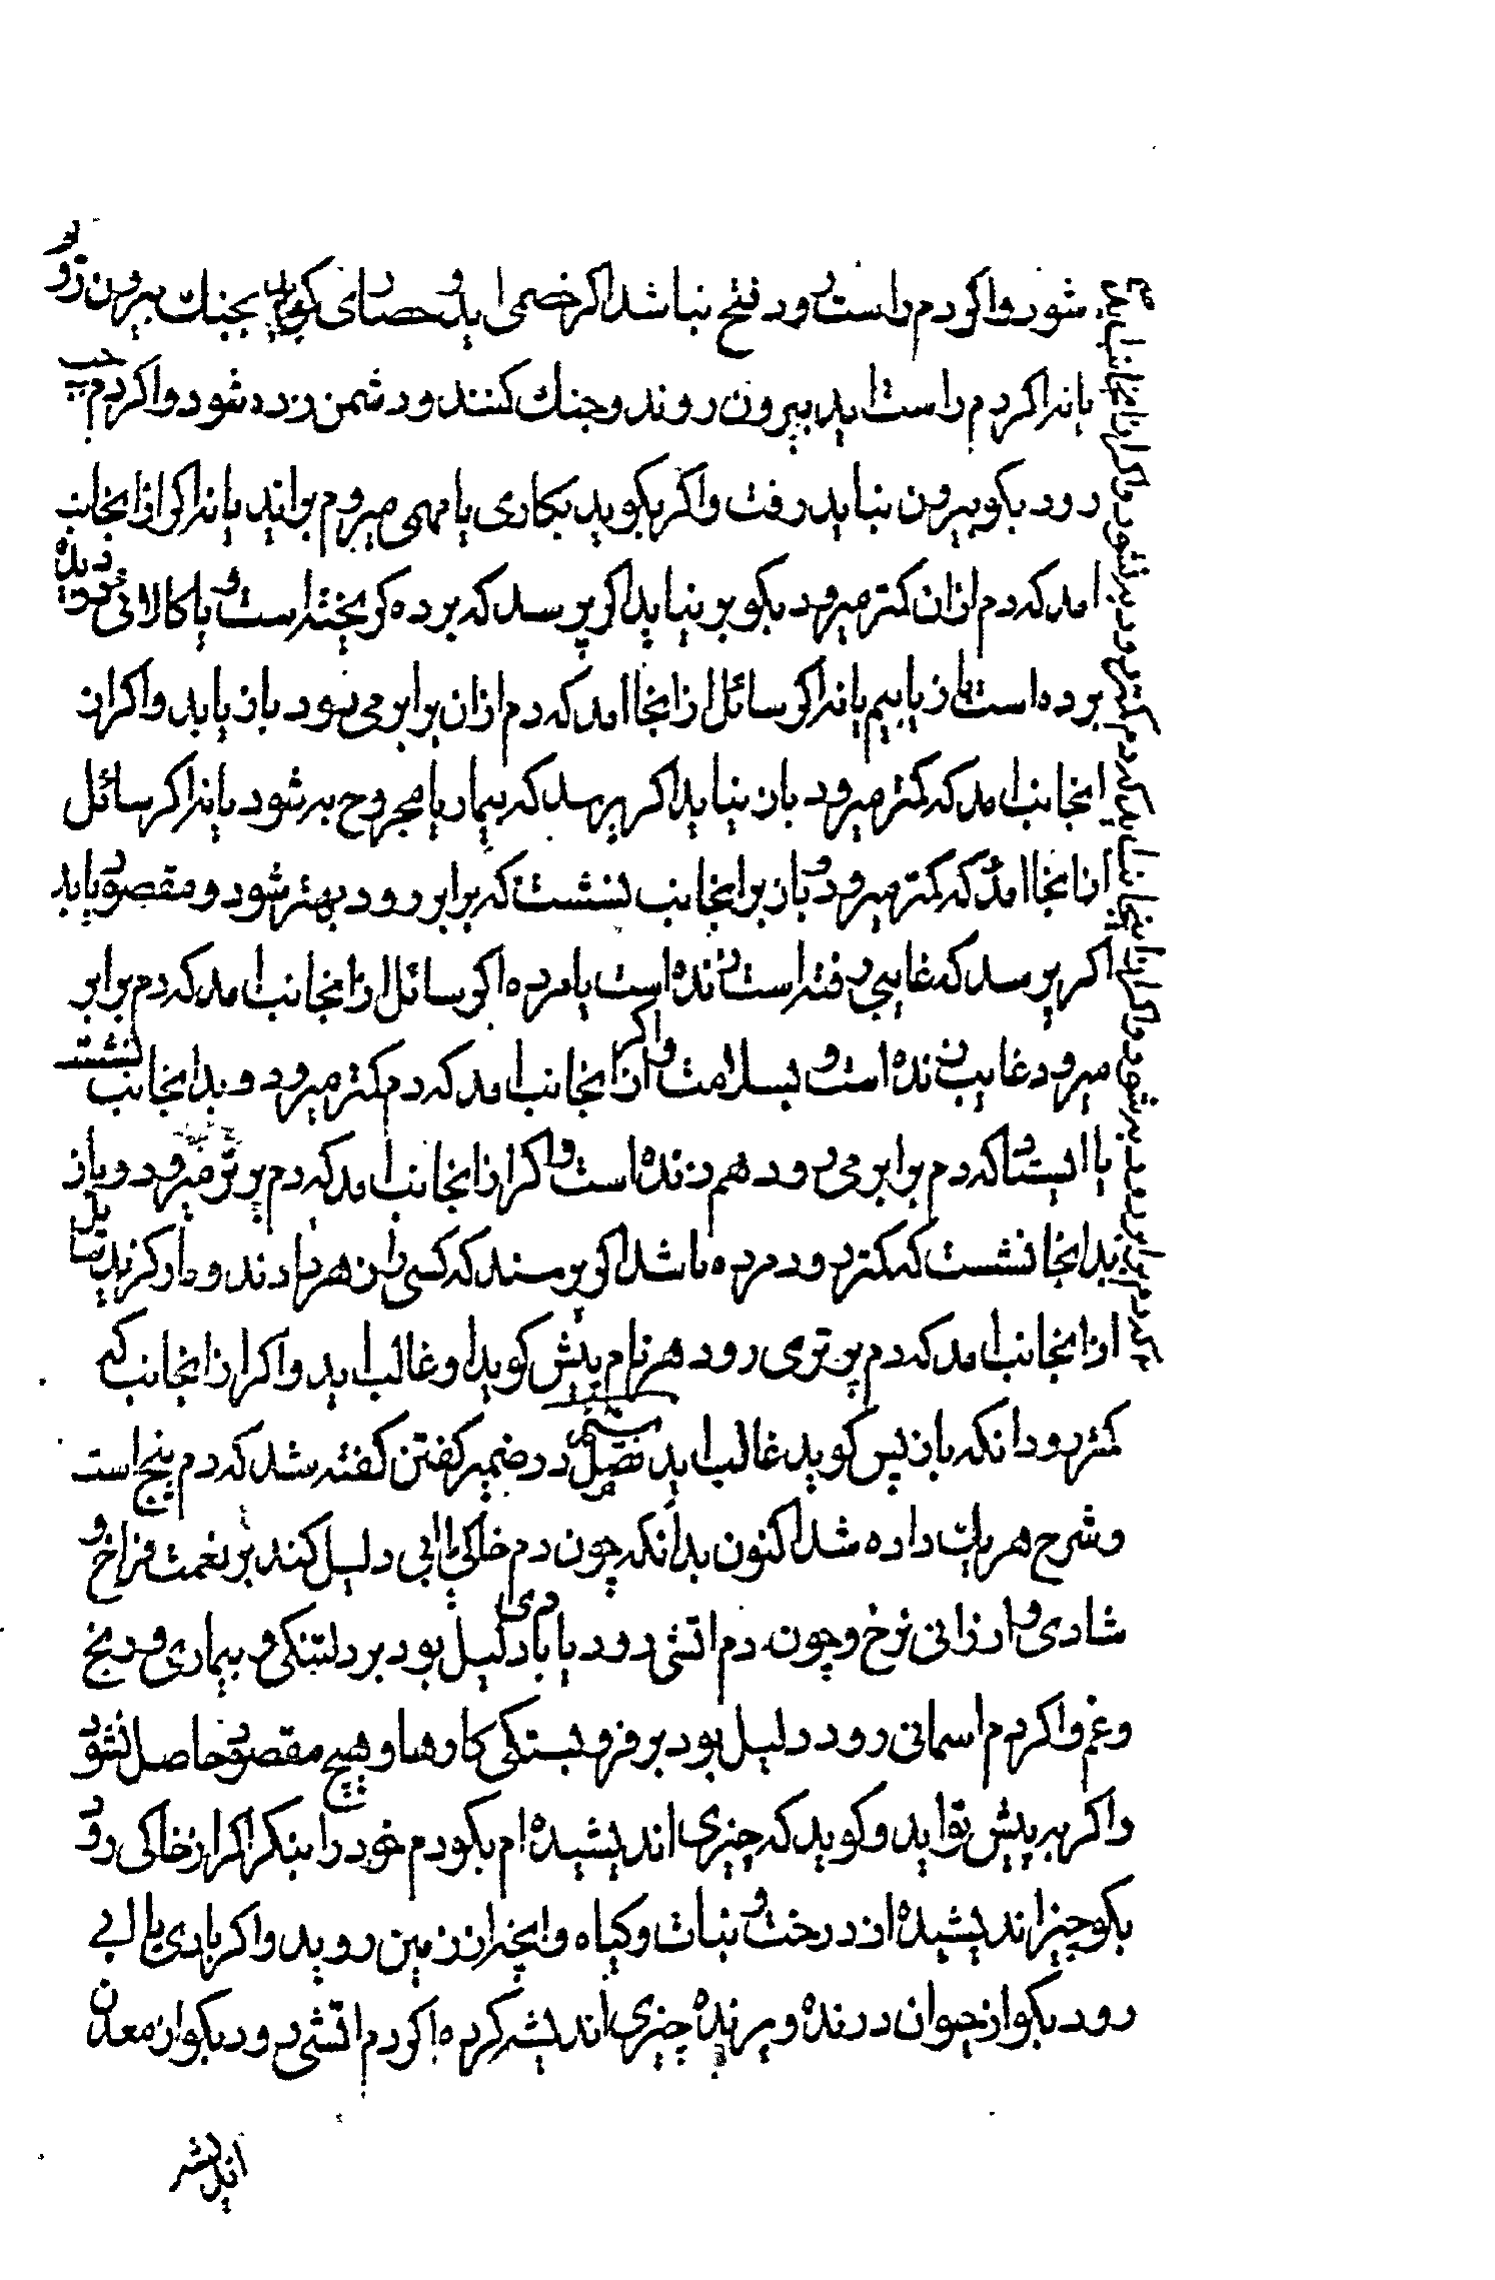 شود واکر دم راست رود فتح نباشد اکر خصمی اید و حصاری کوید بجنك بیرون رو
یا نه اکر دم راست اید بیرون روند وجنك کنند ودشمن زده شود واکر دم چپ
رود بکو بیرون نباید رفت واکر بکوید بکاری یا مهمی میروم براید یا نه اکر از انجانب
امد که دم ازان کمتر میرود بکو بر نیاید اکر پرسد که برده کریخته است و یا کالائی دزدیده
برده است باز یابیم یا نه اکر سائل از انجا امد که دم ازان برابر می رود باز یابد واکر از
انجانب امد که کمتر میرود باز نیابد اکر پرسد که بیمار یا مجروح به شود یا نه اکر سائل
از انجا امد که کمتر میرود و باز بر انجانب نشست که برابر رود بهتر شود و مقصود یابد
اکر پرسد که غایبی رفته است زنده است یا مرده اکر سائل از انجانب امد که دم برابر
میرود غایب زنده است و بسلامت واکر از انجانب امد که دم کمتر میرود و بدانجانب نشست
یا ایستاد که دم برابر می رود هم زنده است و اکر از انجانب امد که دم پرتر میرود و باز
بدانجا نشست که کمتر رود مرده باشد اکر پرسند که کسی
از انجانب امد که دم پرتری رود هر نام پیش کوید او غالب اید واکر از انجانب که
کمتر رود انکه باز پس کوید غالب اید فصل در ضمیر کفتن کفته شد که دم پنج است
وشرح هر یك داده شد اکنون بدانکه چون دم خاکی یا ابی دلیل کند بر نعمت فراخ و
شادی و ارزانی نرخ وچون دم اتشی رود یا بادی دلیل بود بر دلتنکی و بیماری و رنج
وغم واکر دم اسمانی رود دلیل بود بر فرو بستکی کارها و هیچ مقصود حاصل نشود
واکر به پیش تو اید وکوید که چیزی اندیشیده ام بکو دم خود را بنکر اکر از خاکی رود
بکو چیز اندیشیده از درخت و نبات وکیاه وانچه از زمین روید واکر بادی یا ابی
رود بکو از حیوان درنده و پرنده چیزی اندیشه کرده اکر دم اتشی رود بکو از معدن
اندیشه